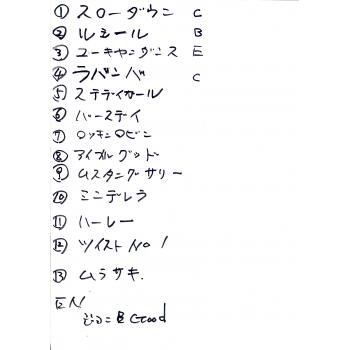 ① スローダウン C
② ルシール B
③ ユーキャンダンス E
④ ラバンバ C
⑤ ステディガール
⑥ バースデイ
⑦ ロッキンロビン
⑧ アイブルグッド
⑨ ムスタングサリー
⑩ ミニデレラ
⑪ ハーレー
⑫ ツイスト No 1
⑬ ムラサキ.
EN
ジョニ B Good